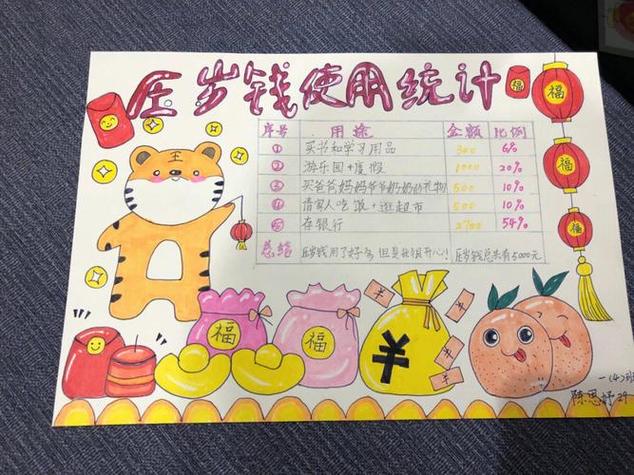 压岁钱使用统计
福
序号 用途 金额 比例
① 买书和学习用品 300 6%
② 游乐园+度假 1000 20%
③ 买爸爸妈妈爷爷奶奶的礼物 500 10%
④ 请家人吃饭+逛超市 500 10%
⑤ 存银行 2700 54%
总结 压岁钱用了好多,但是我很开心! 压岁钱总共有5000元
福
福
福
王
福
福
¥
一(4)班
陈思妤 29